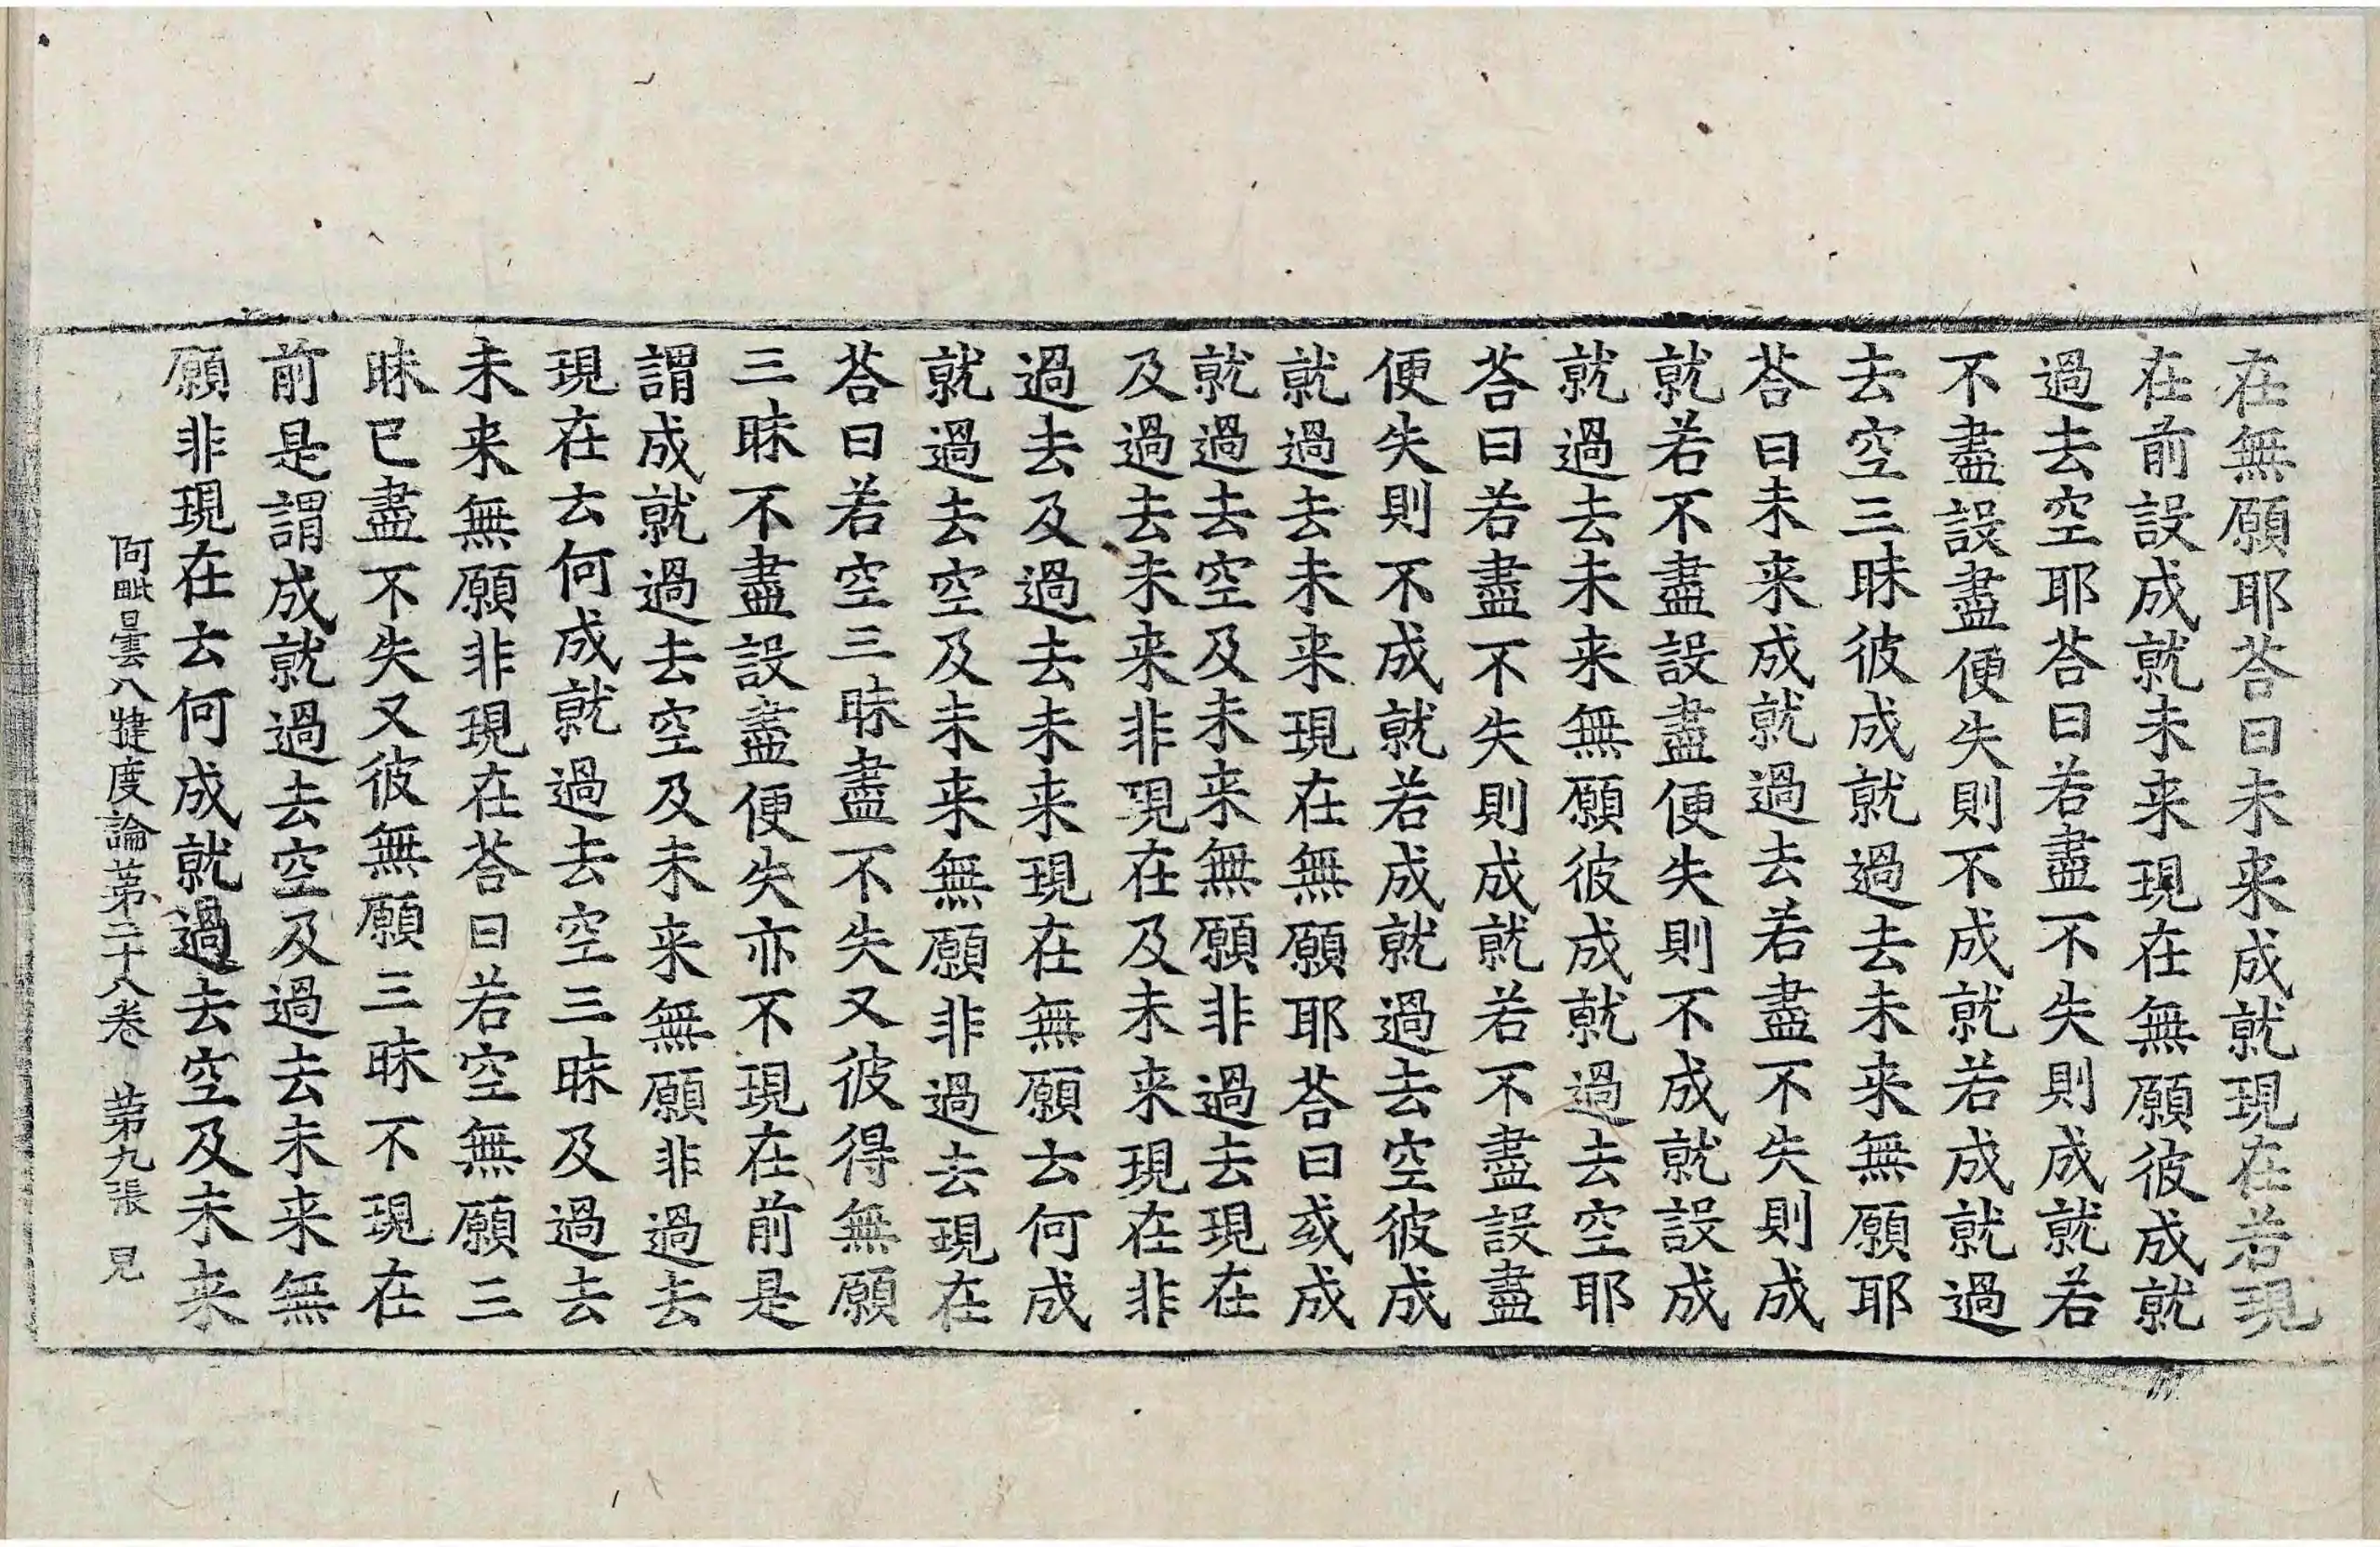 在無願耶荅曰未来成就現在若現
在前設成就未来現在無願彼成就
過去空耶荅曰若盡不失則成就若
不盡設盡便失則不成就若成就過
去空三昧彼成就過去未来無願耶
荅曰未来成就過去若盡不失則成
就若不盡設盡便失則不成就設成
就過去未来無願彼成就過去空耶
荅曰若盡不失則成就若不盡設盡
便失則不成就若成就過去空彼成
就過去未来現在無願耶荅曰或成
就過去空及未来無願非過去現在
及過去未来非現在及未来現在非
過去及過去未来現在無願云何成
就過去空及未来無願非過去現在
荅曰若空三昧盡不失又彼得無願
三昧不盡設盡便失亦不現在前是
謂成就過去空及未来無願非過去
現在云何成就過去空三昧及過去
未来無願非現在荅曰若空無願三
昧已盡不失又彼無願三昧不現在
前是謂成就過去空及過去未来無
願非現在云何成就過去空及未来
阿毗曇八犍度論第二十八卷 第九張 見